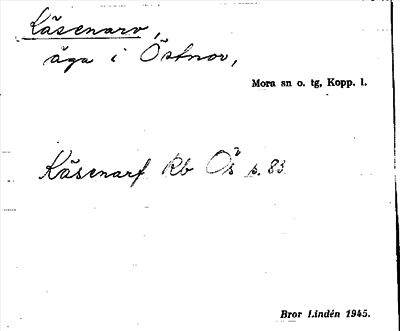 Käsenarv,
äga i Östnor,
Mora sn o. tg, Kopp. l.
Käsenarf Rb Ös p. 83.
Bror Lindén 1945.